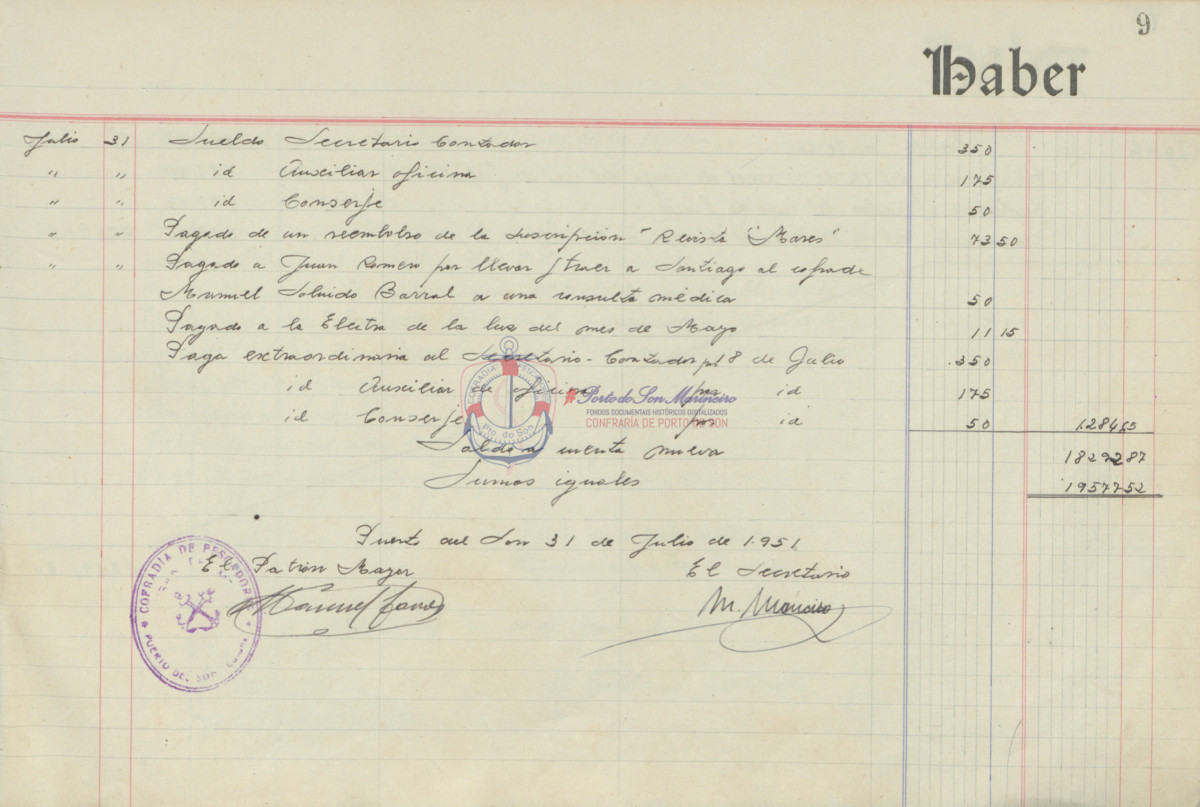 9
Haber
Julio 31 Sueldo Secretario Contador 350
" " id Auxiliar oficina 175
" " id Conserje 50
" " Pagado de un reembolso de la suscripción "Revista "Mares" 73 50
" " Pagado a Juan Romero por llevar y traer a Santiago al cofrade
Manuel Barral a una consulta médica 50
Pagado a la Electra de la luz del mes de Mayo 11 15
Paga extraordinaria al Secretario-Contador pl 8 de Julio 350
id Auxiliar de oficina por id 175
id Conserje por id 50 1.284 65
Saldo a cuenta nueva 18292 87
Sumas iguales 19577 52
Puerto del Son 31 de Julio de 1.951
El Patrón Mayor El Secretario
Manuel M. Mariño
COFRADIA DE PESCADORES
PUERTO DEL SON
COFRADIA PESCADORES
Pto. do Son
#Porto do Son Mariñeiro
FONDOS DOCUMENTAIS HISTÓRICOS DIXITALIZADOS
CONFRARÍA DE PORTO DO SON